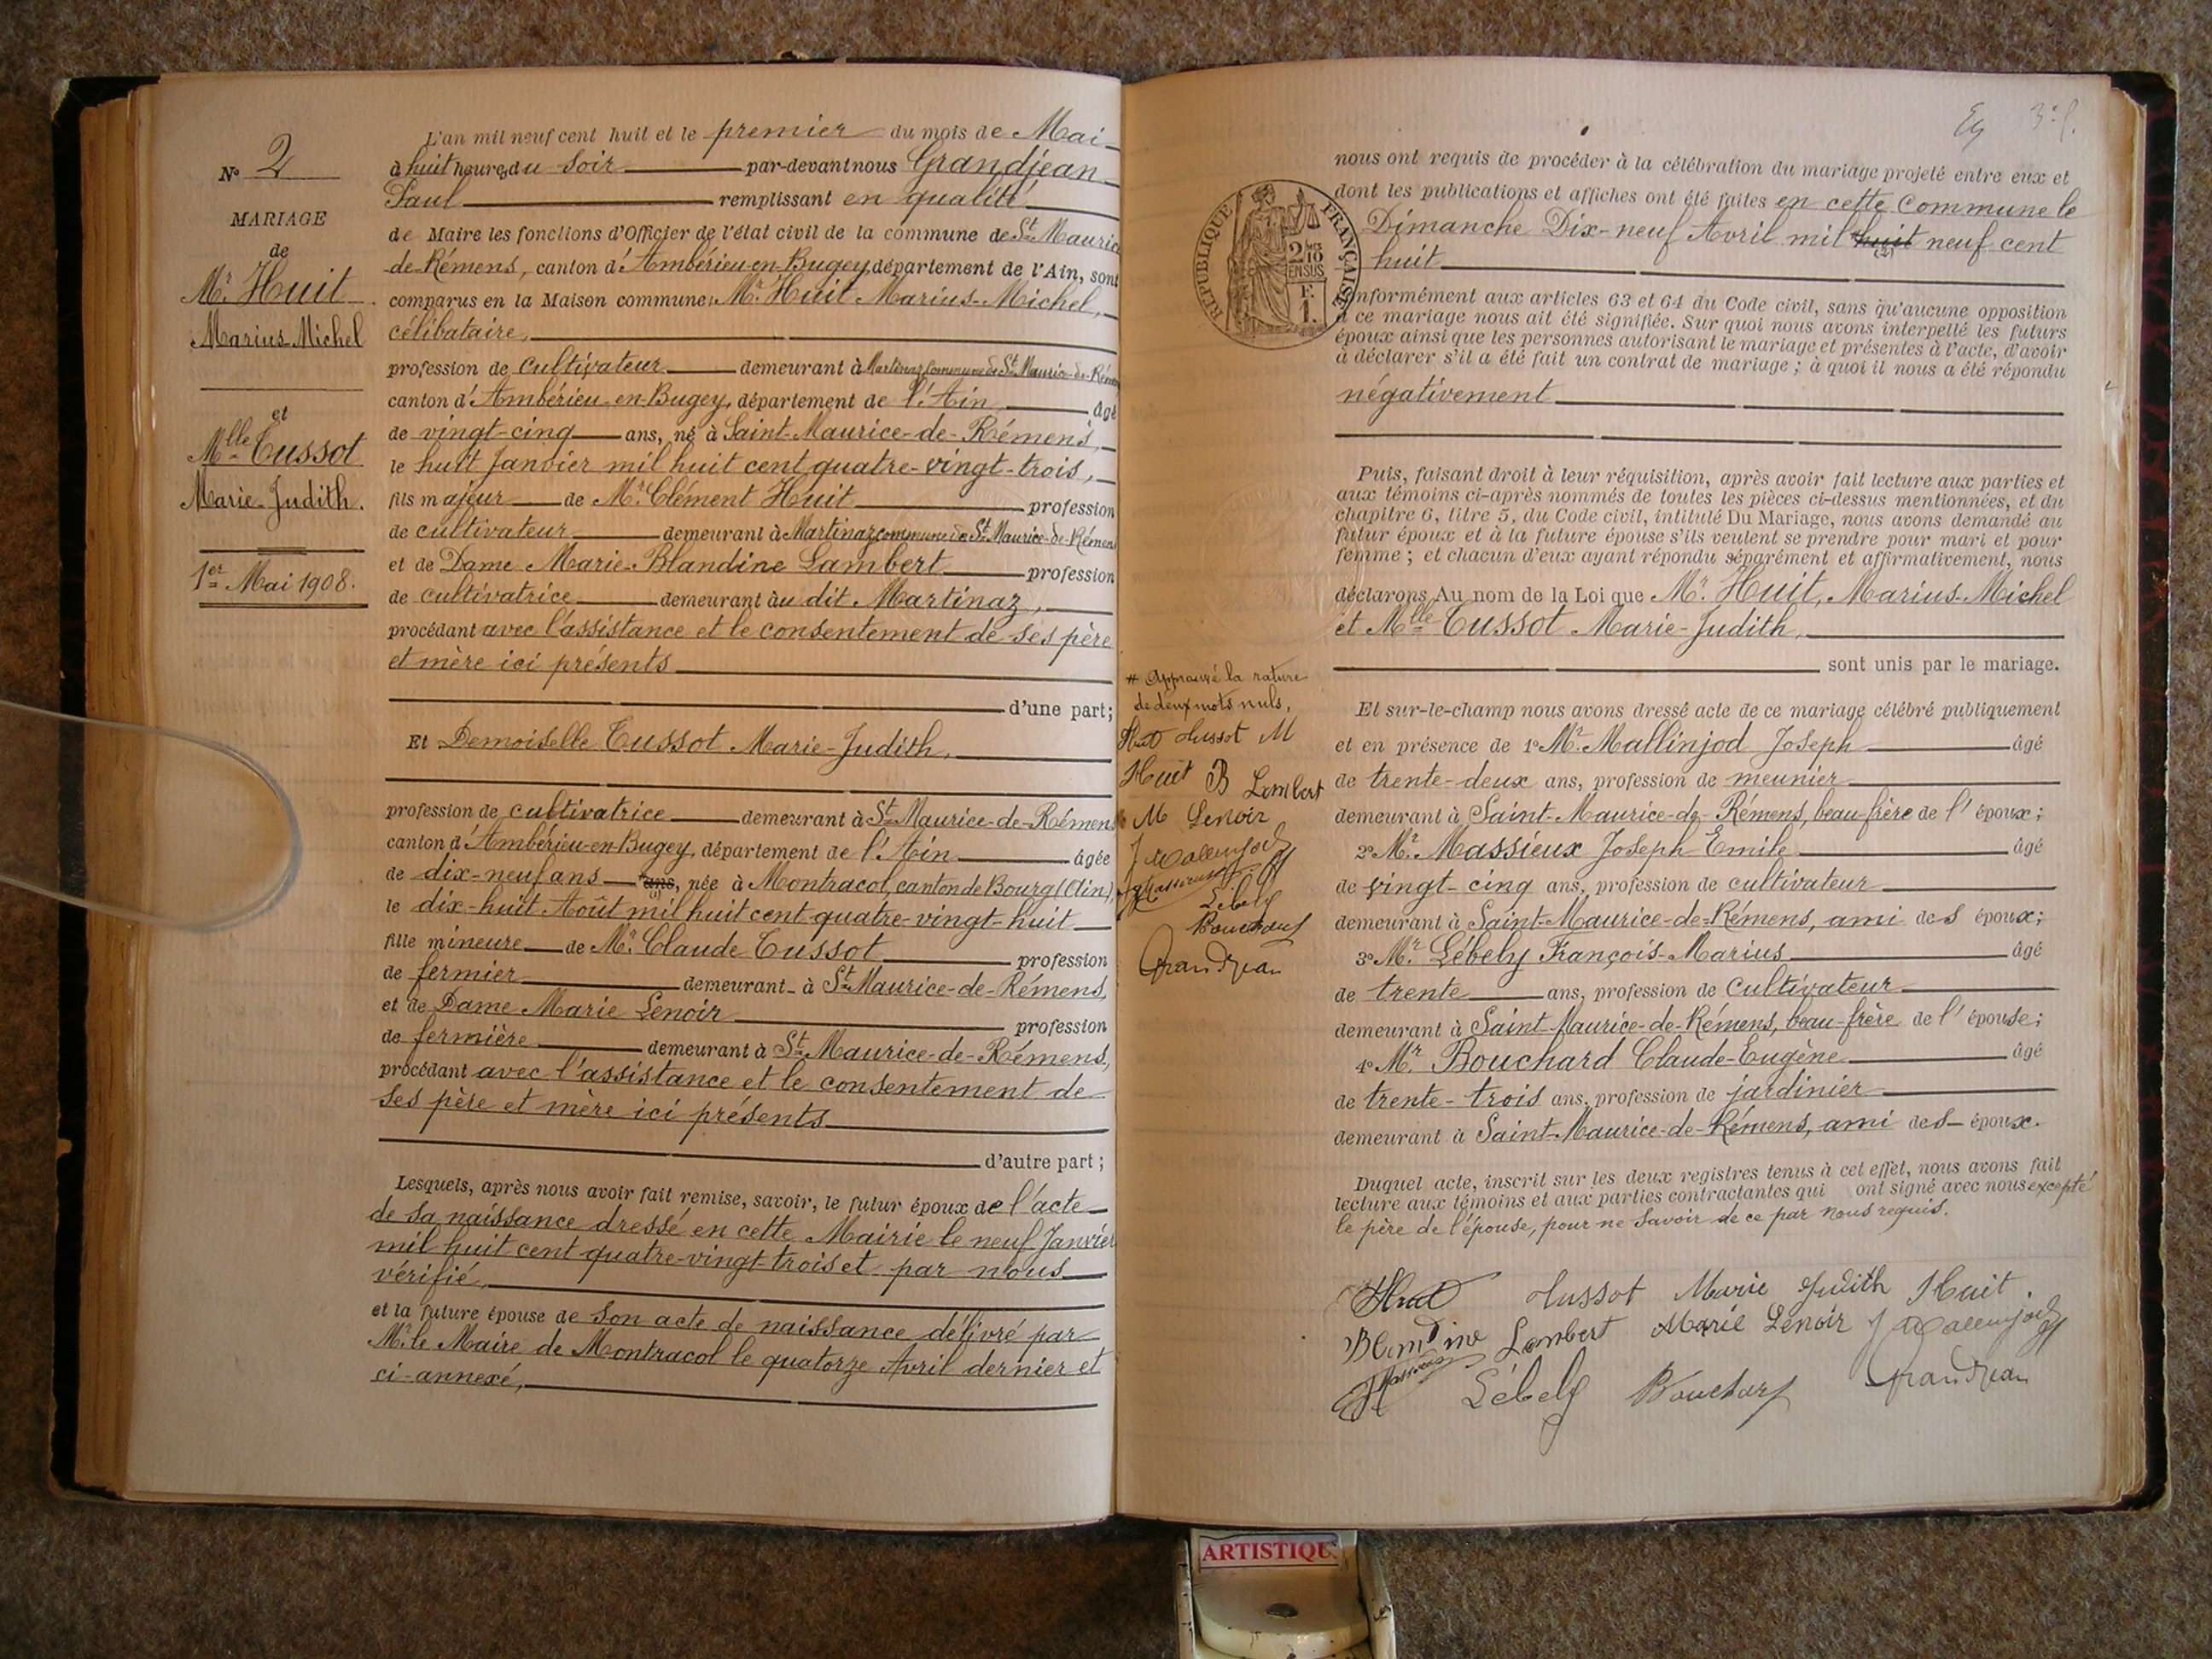 N° 2
MARIAGE
de
Mr. Huit
Marius Michel
et
Mlle Tussot
Marie-Judith.
1er Mai 1908.
L'an mil neuf cent huit et le premier du mois de Mai
à huit heures du soir par-devant nous Grandjean
Paul remplissant en qualité
de Maire les fonctions d'Officier de l'état civil de la commune de St Maurice
de-Rémens, canton d'Ambérieu-en-Bugey, département de l'Ain, sont
comparus en la Maison commune: Mr. Huit Marius-Michel,
célibataire,
profession de cultivateur demeurant à Martinaz commune de St Maurice-de-Rémens
canton d'Ambérieu-en-Bugey, département de l'Ain âgé
de vingt-cinq ans, né à Saint-Maurice-de-Rémens,
le huit Janvier mil huit cent quatre-vingt-trois,
fils majeur de Mr. Clément Huit profession
de cultivateur demeurant à Martinaz commune de St Maurice-de-Rémens
et de Dame Marie-Blandine Lambert profession
de cultivatrice demeurant au dit Martinaz,
procédant avec l'assistance et le consentement de ses père
et mère ici présents
d'une part;
Et Demoiselle Tussot Marie-Judith,
profession de cultivatrice demeurant à St Maurice-de-Rémens
canton d'Ambérieu-en-Bugey, département de l'Ain âgée
de dix-neuf ans ans, née à Montracol, canton de Bourg (Ain),
le dix-huit Août mil huit cent quatre-vingt-huit
fille mineure de Mr. Claude Tussot profession
de fermier demeurant à St Maurice-de-Rémens,
et de Dame Marie Lenoir profession
de fermière demeurant à St Maurice-de-Rémens,
procédant avec l'assistance et le consentement de
ses père et mère ici présents
d'autre part;
Lesquels, après nous avoir fait remise, savoir, le futur époux de l'acte
de sa naissance dressé en cette Mairie le neuf Janvier
mil huit cent quatre-vingt-trois et par nous
vérifié,
et la future épouse de son acte de naissance délivré par
Mr. le Maire de Montracol le quatorze Avril dernier et
ci-annexé,
RÉPUBLIQUE FRANÇAISE
2/10 EN SUS
F. 1.
nous ont requis de procéder à la célébration du mariage projeté entre eux et
dont les publications et affiches ont été faites en cette Commune le
Dimanche Dix-neuf Avril mil huit neuf cent
huit
conformément aux articles 63 et 64 du Code civil, sans qu'aucune opposition
à ce mariage nous ait été signifiée. Sur quoi nous avons interpellé les futurs
époux ainsi que les personnes autorisant le mariage et présentes à l'acte, d'avoir
à déclarer s'il a été fait un contrat de mariage; à quoi il nous a été répondu
négativement
Puis, faisant droit à leur réquisition, après avoir fait lecture aux parties et
aux témoins ci-après nommés de toutes les pièces ci-dessus mentionnées, et du
chapitre 6, titre 5, du Code civil, intitulé Du Mariage, nous avons demandé au
futur époux et à la future épouse s'ils veulent se prendre pour mari et pour
femme; et chacun d'eux ayant répondu séparément et affirmativement, nous
déclarons Au nom de la Loi que Mr. Huit, Marius-Michel
et Mlle Tussot Marie-Judith,
sont unis par le mariage.
Et sur-le-champ nous avons dressé acte de ce mariage célébré publiquement
et en présence de 1° Mr. Mallinjod Joseph âgé
de trente-deux ans, profession de meunier
demeurant à Saint-Maurice-de-Rémens, beau-frère de l'époux;
2° Mr. Massieux Joseph Emile âgé
de vingt-cinq ans, profession de cultivateur
demeurant à Saint-Maurice-de-Rémens, ami des époux;
3° Mr. Lébely François-Marius âgé
de trente ans, profession de cultivateur
demeurant à Saint-Maurice-de-Rémens, beau-frère de l'épouse;
4° Mr. Bouchard Claude-Eugène âgé
de trente-trois ans, profession de jardinier
demeurant à Saint-Maurice-de-Rémens, ami des époux.
Duquel acte, inscrit sur les deux registres tenus à cet effet, nous avons fait
lecture aux témoins et aux parties contractantes qui ont signé avec nous excepté
le père de l'épouse, pour ne savoir de ce par nous requis.
Huit Tussot Marie Judith Huit
Blandine Lambert Marie Lenoir J Mallinjod
Massieux Lébely Bouchard Grandjean
# Approuvé la rature
de deux mots nuls,
Huit Tussot M
Huit B Lambert
M Lenoir
J Mallinjod
Massieux
Lébely
Bouchard
Grandjean
ARTISTIQU